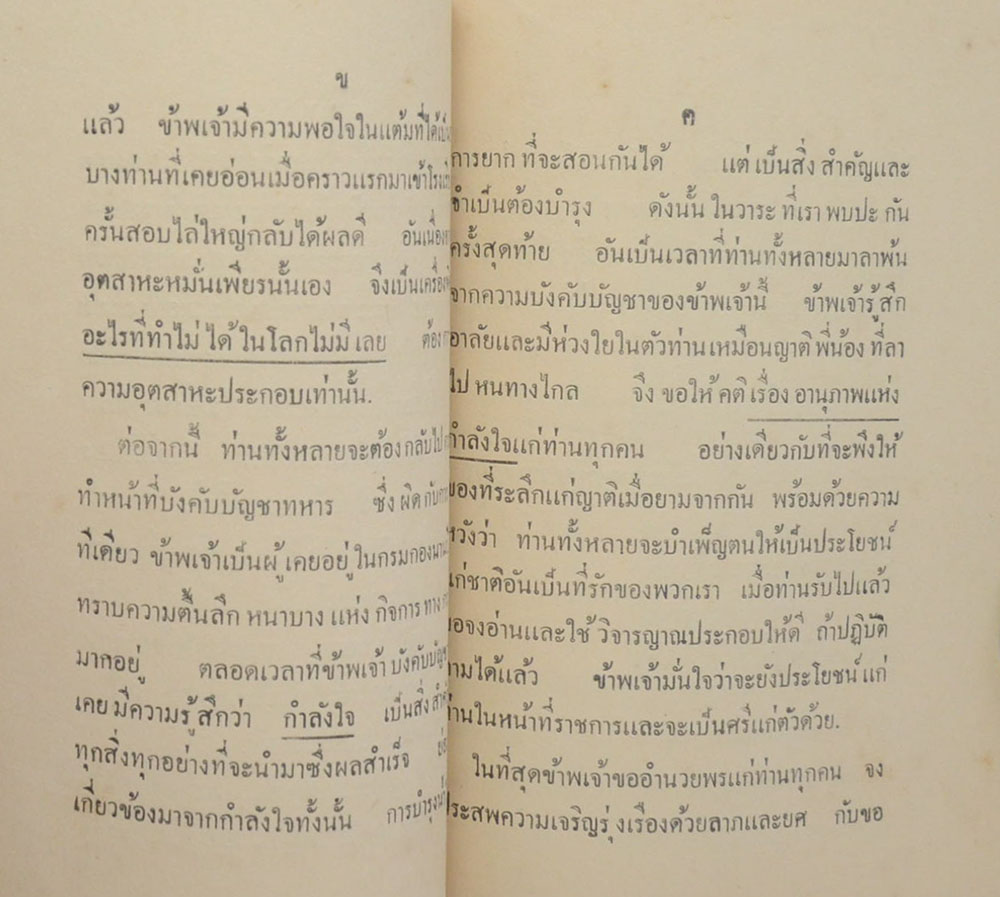 ข
แล้ว ข้าพเจ้ามีความพอใจในแต้มที่ได้
บางท่านที่เคยอ่อนเมื่อคราวแรกมาเข้า
ครั้นสอบไล่ใหญ่กลับได้ผลดี
อุตสาหะหมั่นเพียรนั้นเอง
อะไรที่ทำไม่ได้ในโลกไม่มีเลย ต้อง
ความอุตสาหะประกอบเท่านั้น.
ต่อจากนี้ ท่านทั้งหลายจะต้องกลับไป
ทำหน้าที่บังคับบัญชาทหาร ซึ่งผิดกับ
ทีเดียว ข้าพเจ้าเป็นผู้เคยอยู่ในกรมกอง
ทราบความตื้นลึก หนาบาง แห่ง กิจการ ทาง
มากอยู่ ตลอดเวลาที่ข้าพเจ้า
เคยมีความรู้สึกว่า กำลังใจ เป็นสิ่ง
ทุกสิ่งทุกอย่างที่จะนำมาซึ่งผลสำเร็จ
เกี่ยวข้องมาจากกำลังใจทั้งนั้น
ค
การยาก ที่จะสอนกันได้ แต่ เป็นสิ่ง สำคัญและ
จำเป็นต้องบำรุง ดังนั้น ในวาระ ที่เรา พบปะ กัน
ครั้งสุดท้าย อันเป็นเวลาที่ท่านทั้งหลายมาลาพ้น
จากความบังคับบัญชาของข้าพเจ้านี้ ข้าพเจ้ารู้สึก
อาลัยและมีห่วงใยในตัวท่านเหมือนญาติ พี่น้อง ที่ลา
ไป หนทางไกล จึง ขอให้ คติ เรื่อง อานุภาพแห่ง
กำลังใจแก่ท่านทุกคน อย่างเดียวกับที่จะพึงให้
ของที่ระลึกแก่ญาติเมื่อยามจากกัน พร้อมด้วยความ
หวังว่า ท่านทั้งหลายจะบำเพ็ญตนให้เป็นประโยชน์
แก่ชาติอันเป็นที่รักของพวกเรา เมื่อท่านรับไปแล้ว
ขอจงอ่านและใช้ วิจารญาณประกอบให้ดี ถ้าปฏิบัติ
ตามได้แล้ว ข้าพเจ้ามั่นใจว่าจะยังประโยชน์ แก่
ท่านในหน้าที่ราชการและจะเป็นศรีแก่ตัวด้วย.
ในที่สุดข้าพเจ้าขออำนวยพรแก่ท่านทุกคน จง
ประสพความเจริญรุ่งเรืองด้วยลาภและยศ กับขอ